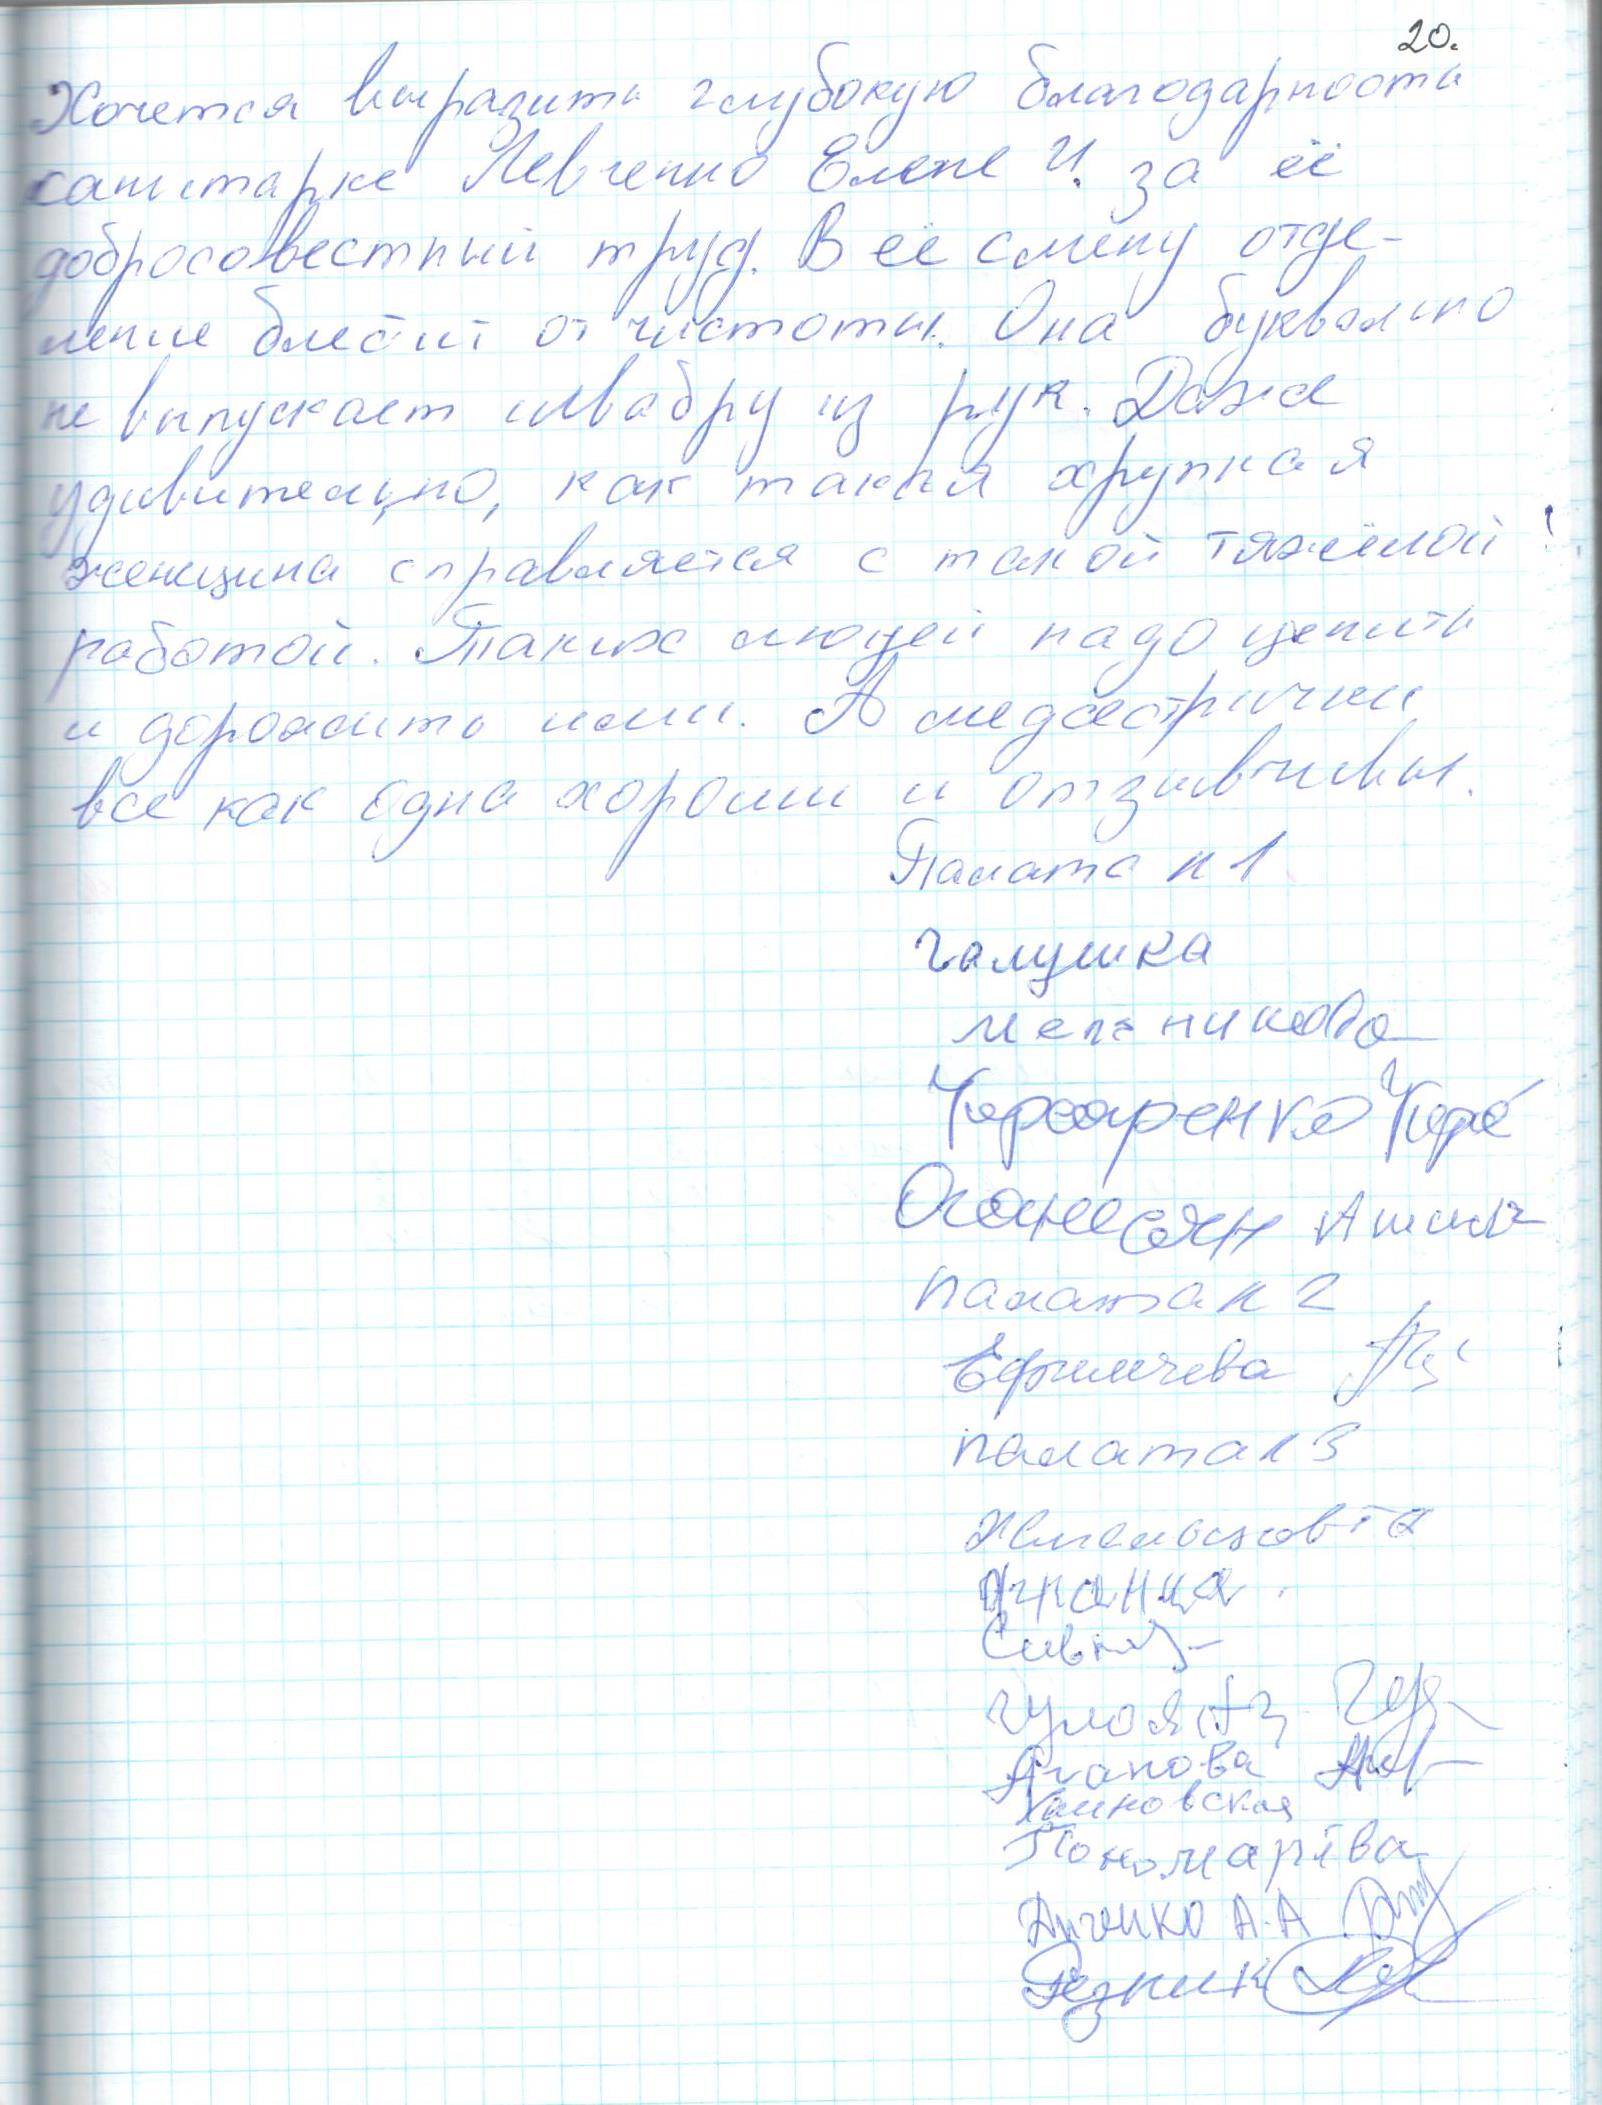 20.
Хочется выразить глубокую благодарность
санитарке Левченко Елене И. за её
добросовестный труд. В её смену отде-
ление блестит от чистоты. Она буквально
не выпускает швабру из рук. Даже
удивительно, как такая хрупкая
женщина справляется с такой тяжёлой
работой. Таких людей надо ценить
и дорожить ими. А медсестрички
все как одна хороши и отзывчивы.
Палата N 1
Галушка
Мельникова
Оганесян
палата N 2
Ефимчева
палата N 3
Агапова
Пономарёва
А.А
Резник